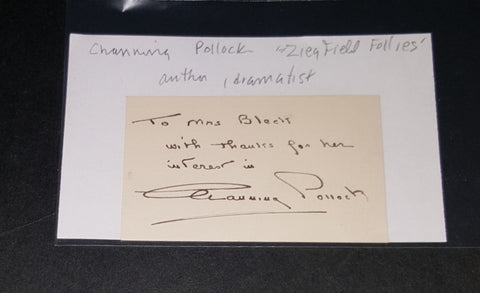 Channing Pollock "Ziegfield Follies"
author, dramatist
To Mrs Black
with thanks for her
interest in
Channing Pollock